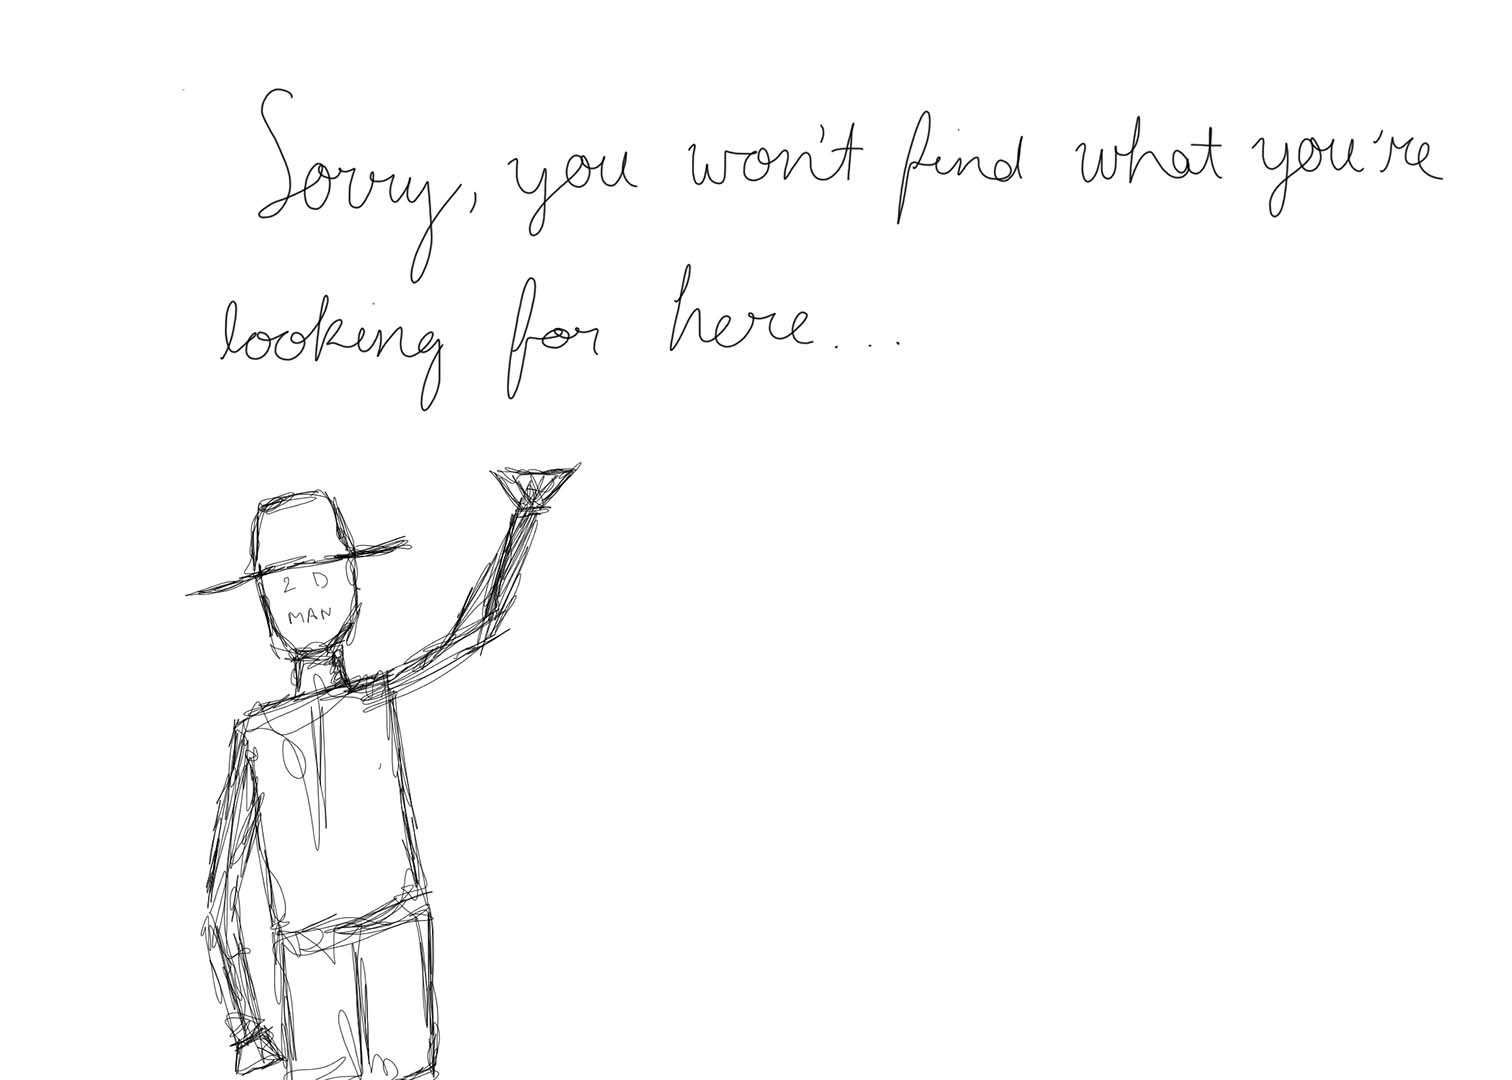 Sorry, you won't find what you're
looking for here...
2 D
MAN